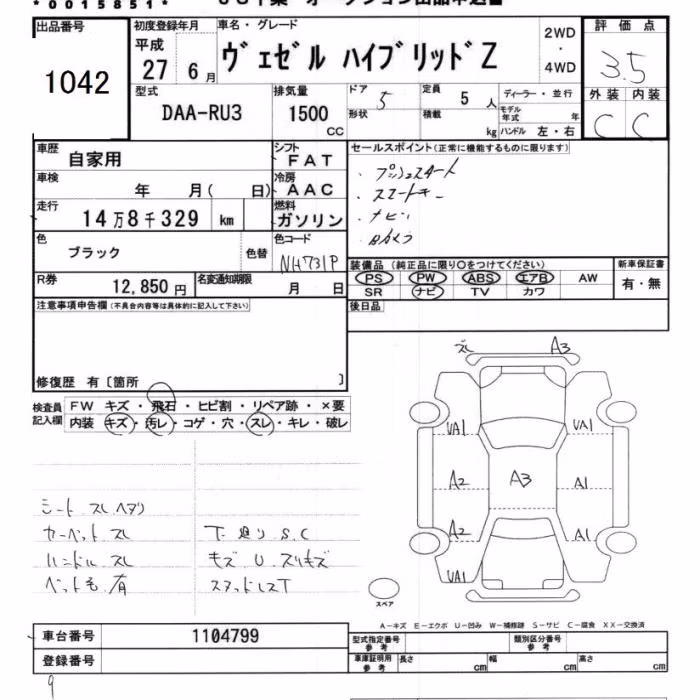 *0015851*
出品番号
1042
初度登録年月
平成
27 6月
車名・グレード
ヴェゼル ハイブリッドZ
2WD
・
4WD
評価点
3.5
外装 内装
C C
型式
DAA-RU3
排気量
1500
CC
ドア
5
形状
定員
5 人
積載
kg
ディーラー・並行
モデル年式
年
ハンドル 左・右
車歴
自家用
シフト
FAT
車検
年 月( 日)
冷房
AAC
走行
14万8千329 km
燃料
ガソリン
色
ブラック
色替
色コード
NH731P
R券
12,850円
名変通知期限
月 日
セールスポイント(正常に機能するものに限ります)
・プッシュスタート
・スマートキー
・ナビ
装備品(純正品に限り〇をつけてください)
PS PW ABS エアB AW
SR ナビ TV カワ
新車保証書
有・無
後日品
注意事項申告欄(不具合内容等は具体的に記入して下さい)
修復歴 有〔箇所 〕
検査員記入欄
FW キズ・飛石・ヒビ割・リペア跡・×要
内装 キズ・汚レ・コゲ・穴・スレ・キレ・破レ
シート スレ ヘタリ
カーペット スレ
ハンドル スレ
ペット毛 有
下廻り S.C
キズ U スリキズ
スタッドレスT
スレ A3
UA1 UA1
A2 A3 A1
A2 A1
UA1
スペア
A-キズ E-エクボ U-凹み W-補修跡 S-サビ C-腐食 XX-交換済
車台番号
1104799
登録番号
型式指定番号
参考
類別区分番号
参考
車庫証明用
参考
長さ cm 幅 cm 高さ cm
9